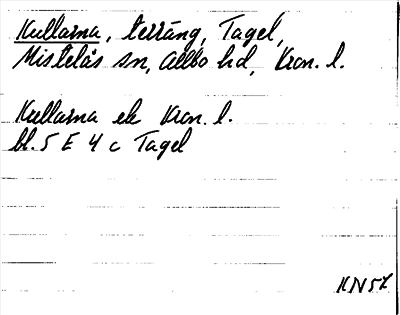 Kullarna, terräng, Tagel,
Mistelås sn, Allbo hd, Kron. l.
Kullarna ek Kron. l.
bl. 5 E 4 c Tagel
KN57